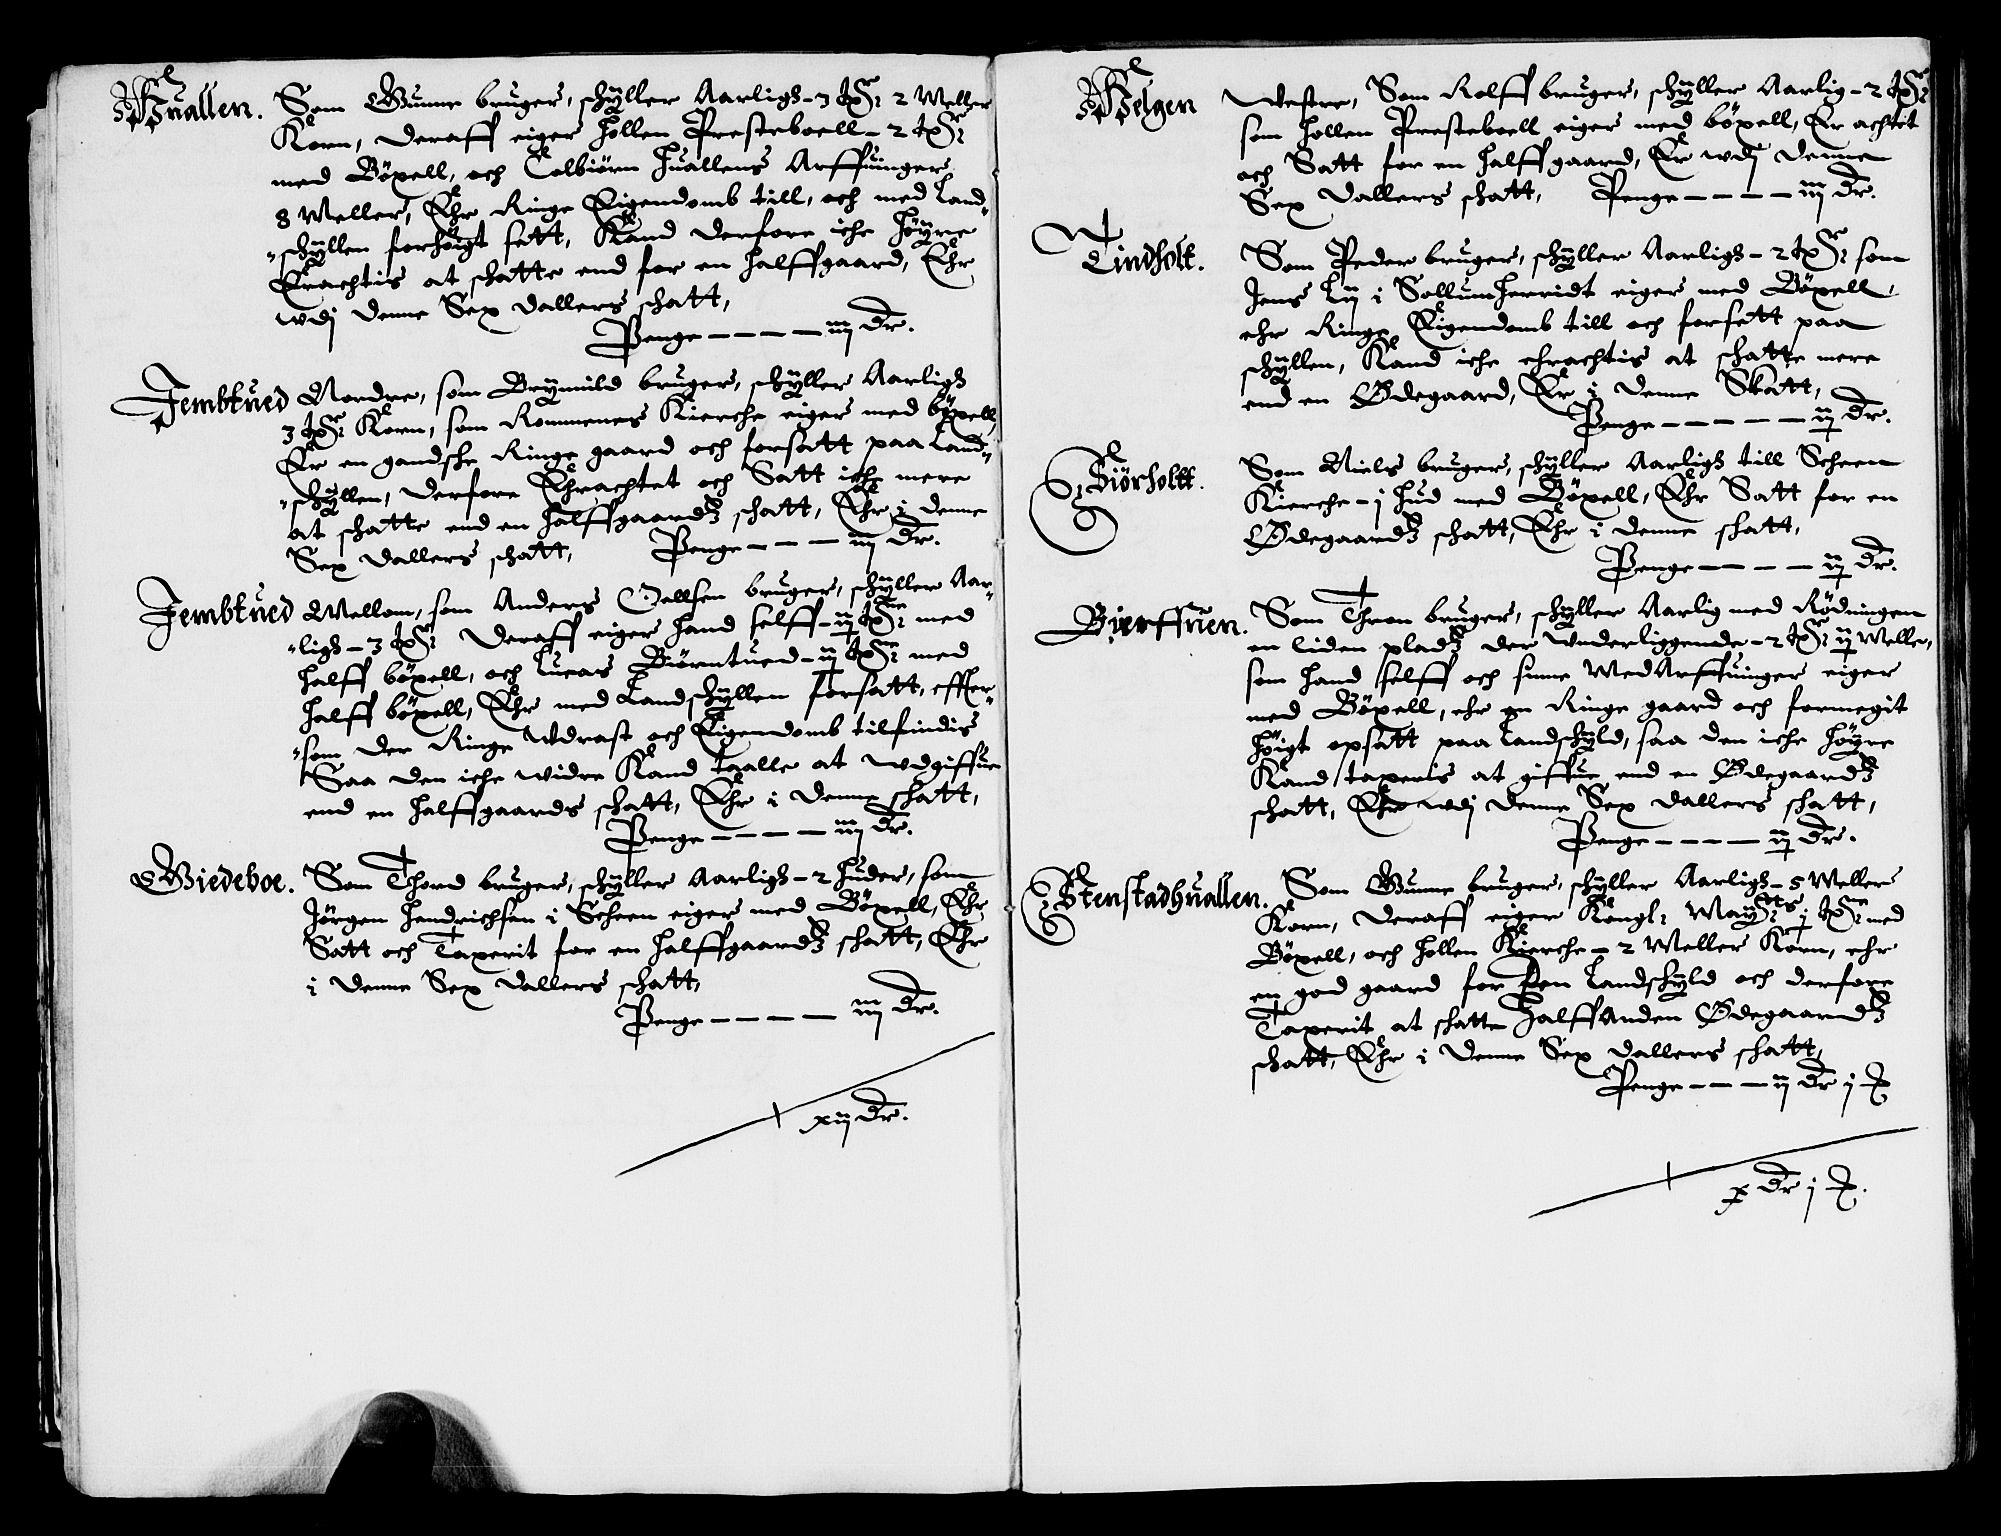 Huallen. Som Gunne bruger, schÿller Aarligs - 3 tβr 2 Meller
Korn, deraff eiger Hollen Presteboell - 2 tβr
med Böxell, och Tolbiörn Huallens Arffuinger
8 Meller, Ehr Ringe Eigendomb till, och med Land-
schÿllen forhöigt sett, Kand derfore iche Höÿre
Erachtis at schatte end for en halffgaard, Ehr
wdj denne Sex dallers schatt,
Penge - - - - iij dr.
Jembtued Nordre, som Brÿnnild bruger, schÿller Aarligs
3 tβr Korn, som Rommenes Kierche eiger med böxell,
Er en gandsche Ringe gaard och forsatt paa Land-
schÿllen, derfore Ehrachtet och Satt iche mere
at schatte end en halffgaards schatt, Ehr i denne
Sex dallers schatt, Penge - - - iij dr.
Jembtued Mellom, som Anders Joellsen bruger, schÿller Aar-
ligs - 3 tβr deraff eiger hand selff - ij tβr med
halff böxell, och Lucas Biörntued - ij tβr med
halff böxell, Ehr med Landschÿllen forsatt, effter-
som der Ringe Vdrast och Eigendomb tilfindis
Saa den iche widre Kand taalle at wdgiffue
end en halffgaards schatt, Ehr i denne schatt,
Penge - - - - iij dr.
Wiedeboe. Som Thord bruger, schÿller Aarligs - 2 huder, som
Jörgen Hendrichsen i Scheen eiger med Böxell, Ehr
Satt och Taxerit for en halffgaards schatt, Ehr
i denne Sex dallers schatt,
Penge - - - - iij dr.
xij dr.
Helgen Westre, Som Rolff bruger, schÿller Aarlig - 2 tβr
som Hollen Presteboell eiger med böxell, Er achtet
och Satt for en halffgaard, Er wdj denne
Sex dallers schatt, Penge - - - - iij dr.
Tindholt. Som Peder bruger, schÿller Aarligs - 2 tβr som
Jens Lÿ i Sollumherridt eiger med Böxell,
ehr Ringe Eigendomb till och forsett paa
schÿllen, Kand iche ehrachtis at schatte mere
end en Ødegaard, Er i denne Skatt,
Penge - - - - - ij dr.
Siörholtt. Som Niels bruger, schÿller Aarligs till Scheen
Kierche - j hud med Böxell, Ehr Satt for en
Ødegaards schatt, Ehr i denne schatt,
Penge - - - - ij dr.
Bierffuen. Som Thron bruger, schÿller Aarlig med Rödningen
en liden plads der wnderliggende - 2 tβr ij Meller,
som hand selff och sinne MedArffuinger eiger
med Böxell, ehr en Ringe gaard och formegit
höigt opsatt paa Landschÿld, saa den iche höÿre
Kand taxeris at giffue end en Ødegaards
schatt, Ehr wdj denne Sex dallers schatt,
Penge - - - - ij dr.
Stenstadhuallen. Som Gunne bruger, schÿller Aarligs - 5 Meller
Korn, deraff eiger Kongl: Maÿtts j tβr med
Böxell, och Hollen Kierche - 2 Meller Korn, ehr
en god gaard for den Landschÿld och derfore
Taxerit at schatte halffAnden Ødegaards
schatt, Ehr i denne Sex dallers schatt,
Penge - - - ij dr j
x dr j